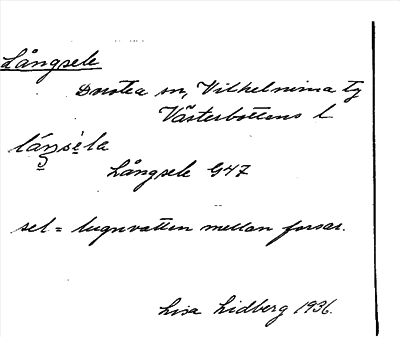 Långsele
Dorotea sn, Vilhelmina tg
Västerbottens l
lǻŋsèla
Långsele G47
sel = lugnvatten mellan forsar.
Lisa Lidberg 1936.